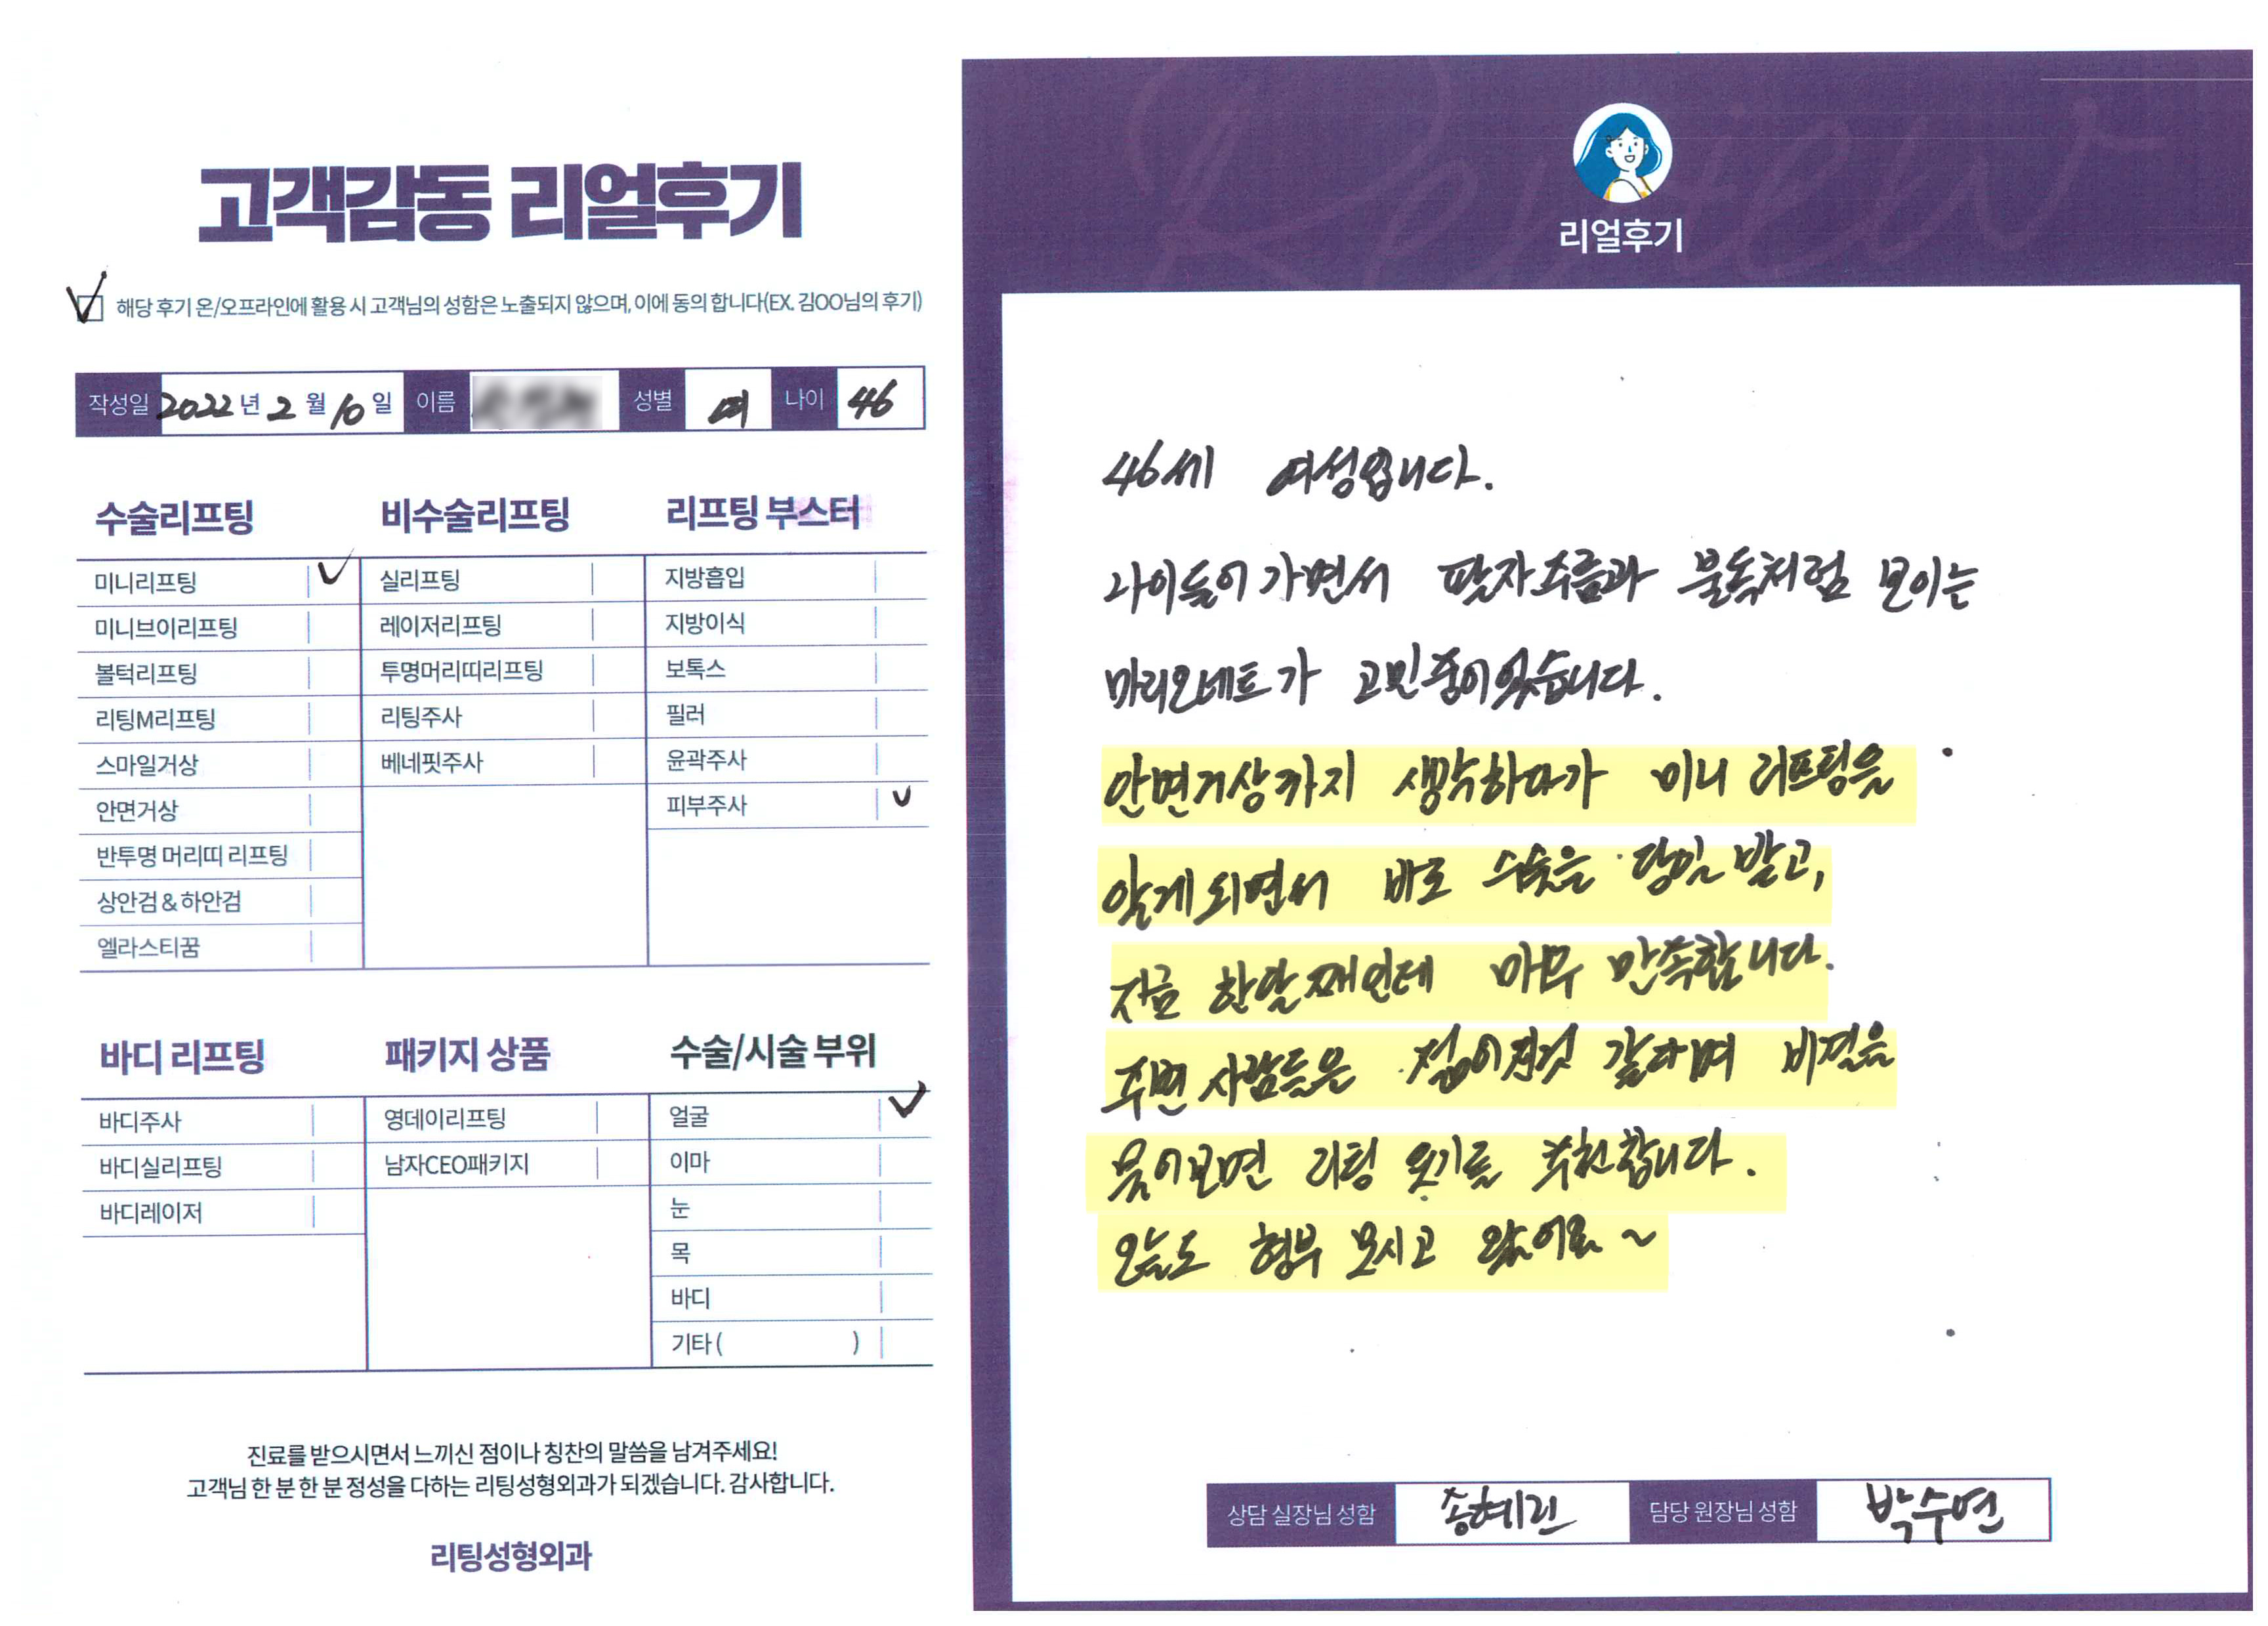 고객감동 리얼후기
해당 후기 온/오프라인에 활용 시 고객님의 성함은 노출되지 않으며, 이에 동의 합니다(EX. 김OO님의 후기)
작성일 2022년 2월 10일 이름 성별 여 나이 46
수술리프팅
미니리프팅
미니브이리프팅
볼턱리프팅
리팅M리프팅
스마일거상
안면거상
반투명 머리띠 리프팅
상안검 & 하안검
엘라스티꿈
비수술리프팅
실리프팅
레이저리프팅
투명머리띠리프팅
리팅주사
베네핏주사
리프팅 부스터
지방흡입
지방이식
보톡스
필러
윤곽주사
피부주사
바디 리프팅
바디주사
바디실리프팅
바디레이저
패키지 상품
영데이리프팅
남자CEO패키지
수술/시술 부위
얼굴
이마
눈
목
바디
기타 ( )
진료를 받으시면서 느끼신 점이나 칭찬의 말씀을 남겨주세요!
고객님 한 분 한 분 정성을 다하는 리팅성형외과가 되겠습니다. 감사합니다.
리팅성형외과
Review
리얼후기
46세 여성입니다.
나이들어 가면서 팔자주름과 불독처럼 보이는
마리오네트가 고민중이었습니다.
안면거상까지 생각하다가 미니 리프팅을
알게되면서 바로 수술은 당일 받고,
지금 한달째인데 아무 만족합니다.
주변 사람들은 젊어진것 같다며 비결을
물어보면 리팅 옷기를 추천합니다.
오늘도 형부 모시고 왔어요 ~
상담 실장님 성함 송혜린 담당 원장님 성함 박수연